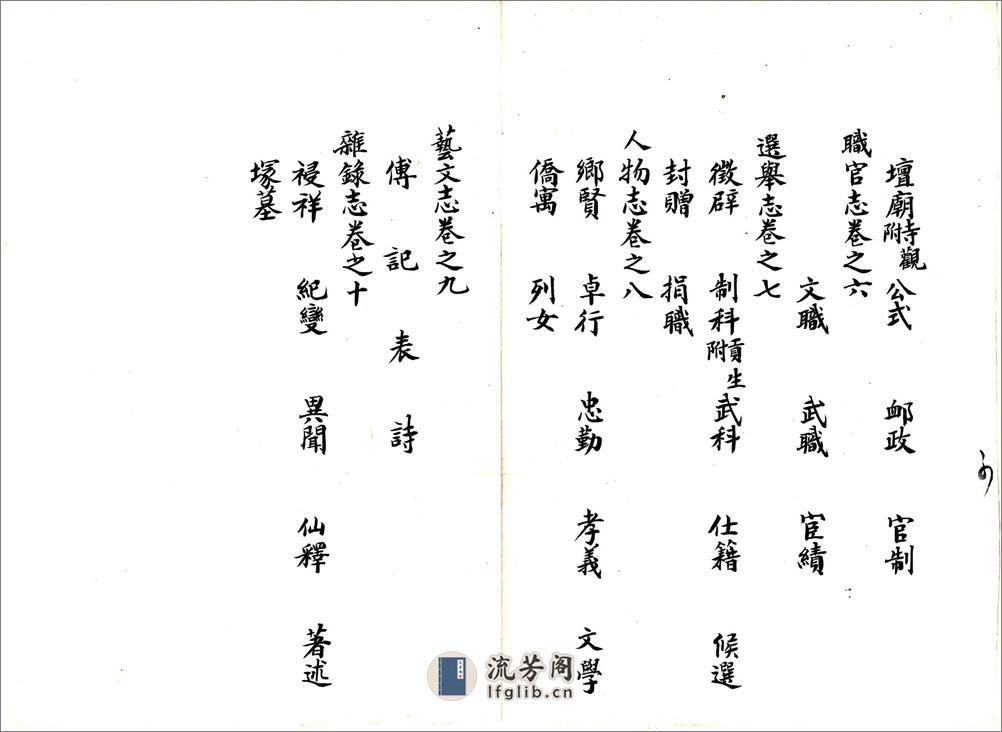 壇廟附寺觀 公式 䘏政 官制
職官志卷之六
文職 武職 宦績
選舉志卷之七
徵辟 制科附貢生 武科 仕籍 候選
封贈 捐職
人物志卷之八
鄉賢 卓行 忠勤 孝義 文學
僑寓 列女
藝文志卷之九
傳 記 表 詩
雜錄志卷之十
祲祥 紀變 異聞 仙釋 著述
塚墓
流芳阁
lfglib.cn